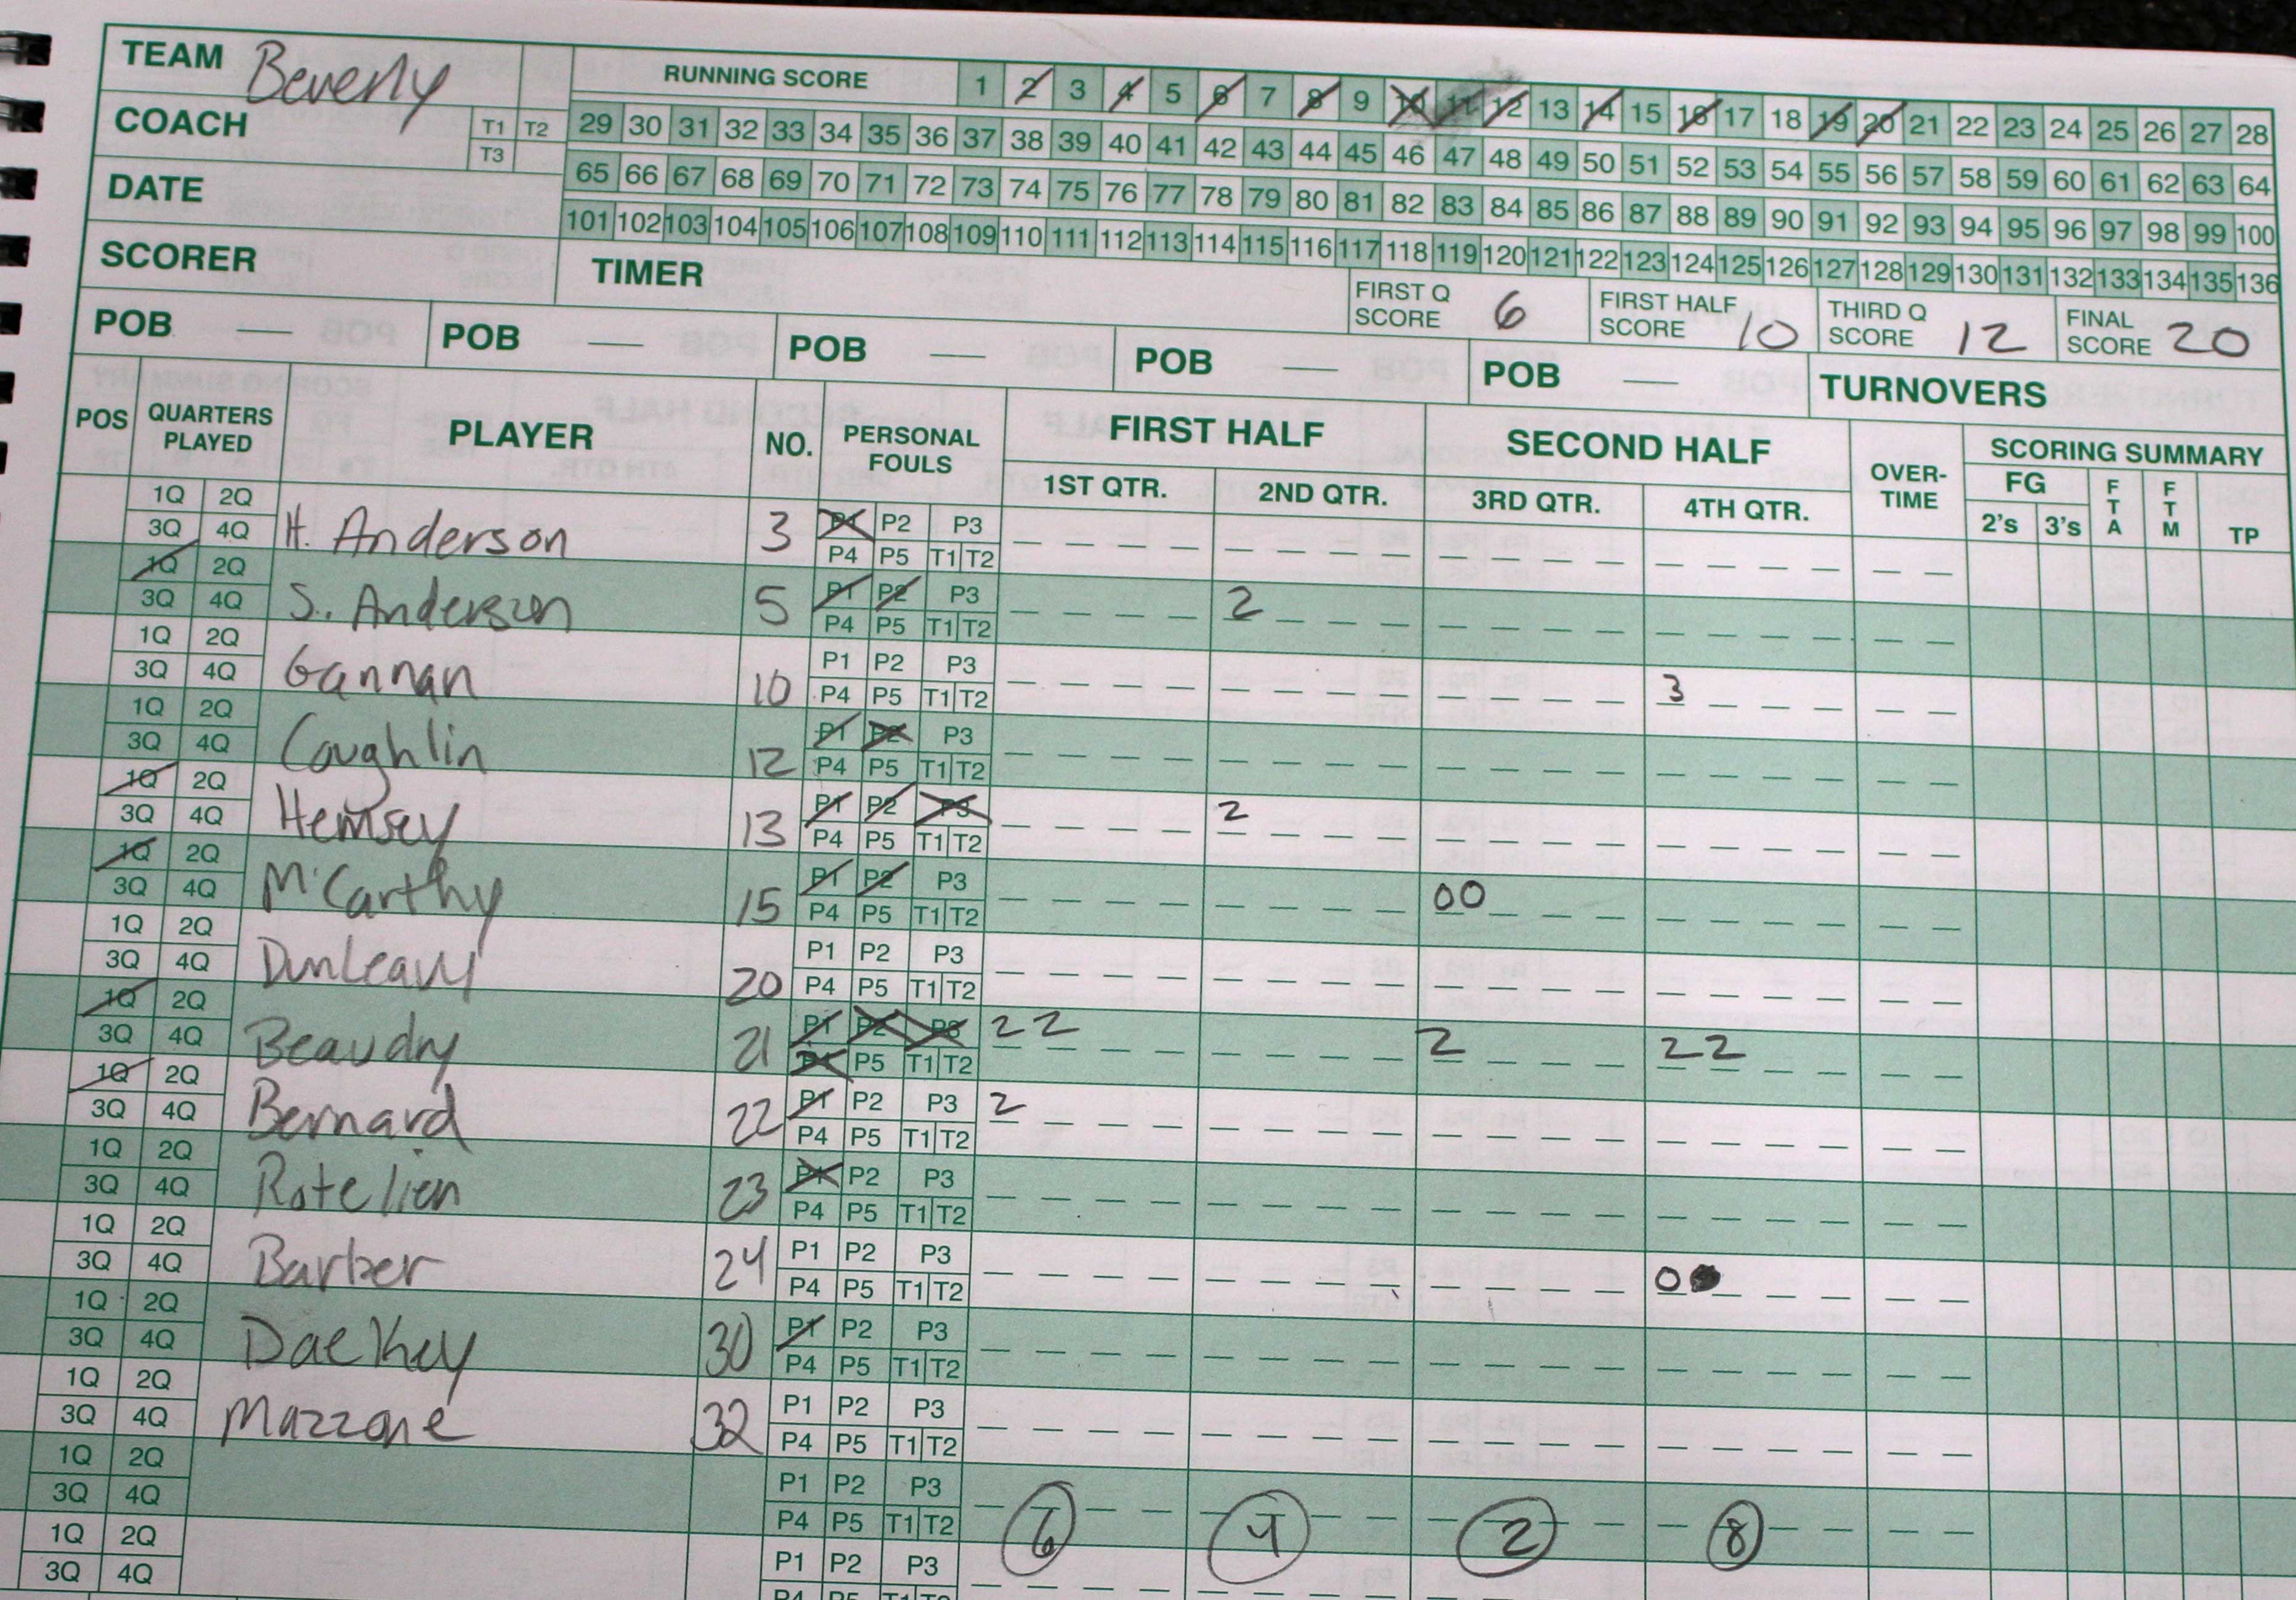 TEAM Beverly
RUNNING SCORE 1 2 3 4 5 6 7 8 9 10 11 12 13 14 15 16 17 18 19 20 21 22 23 24 25 26 27 28
COACH T1 T2 29 30 31 32 33 34 35 36 37 38 39 40 41 42 43 44 45 46 47 48 49 50 51 52 53 54 55 56 57 58 59 60 61 62 63 64
T3
DATE 65 66 67 68 69 70 71 72 73 74 75 76 77 78 79 80 81 82 83 84 85 86 87 88 89 90 91 92 93 94 95 96 97 98 99 100
101 102 103 104 105 106 107 108 109 110 111 112 113 114 115 116 117 118 119 120 121 122 123 124 125 126 127 128 129 130 131 132 133 134 135 136
SCORER TIMER FIRST Q SCORE 6 FIRST HALF SCORE 10 THIRD Q SCORE 12 FINAL SCORE 20
POB — POB — POB — POB — POB — TURNOVERS
POS QUARTERS PLAYED PLAYER NO. PERSONAL FOULS FIRST HALF SECOND HALF OVER-TIME SCORING SUMMARY
1ST QTR. 2ND QTR. 3RD QTR. 4TH QTR. FG 2's 3's FTA FTM TP
1Q 2Q P1 P2 P3
3Q 4Q H. Anderson 3 P4 P5 T1 T2
1Q 2Q P1 P2 P3
3Q 4Q S. Anderson 5 P4 P5 T1 T2 2
1Q 2Q P1 P2 P3
3Q 4Q Gannan 10 P4 P5 T1 T2 3
1Q 2Q P1 P2 P3
3Q 4Q Coughlin 12 P4 P5 T1 T2
1Q 2Q P1 P2 P3
3Q 4Q Hemsey 13 P4 P5 T1 T2 2
1Q 2Q P1 P2 P3
3Q 4Q McCarthy 15 P4 P5 T1 T2 00
1Q 2Q P1 P2 P3
3Q 4Q Dunleavy 20 P4 P5 T1 T2
1Q 2Q P1 P2 P3
3Q 4Q Beaudry 21 P4 P5 T1 T2 2 2 2 2 2
1Q 2Q P1 P2 P3
3Q 4Q Bernard 22 P4 P5 T1 T2 2
1Q 2Q P1 P2 P3
3Q 4Q 23 P4 P5 T1 T2
1Q 2Q P1 P2 P3
3Q 4Q Barber 24 P4 P5 T1 T2 0
1Q 2Q P1 P2 P3
3Q 4Q 30 P4 P5 T1 T2
1Q 2Q P1 P2 P3
3Q 4Q Mazzone 32 P4 P5 T1 T2
1Q 2Q P1 P2 P3
3Q 4Q P4 P5 T1 T2 6 4 2 8
1Q 2Q P1 P2 P3
3Q 4Q P4 P5 T1 T2